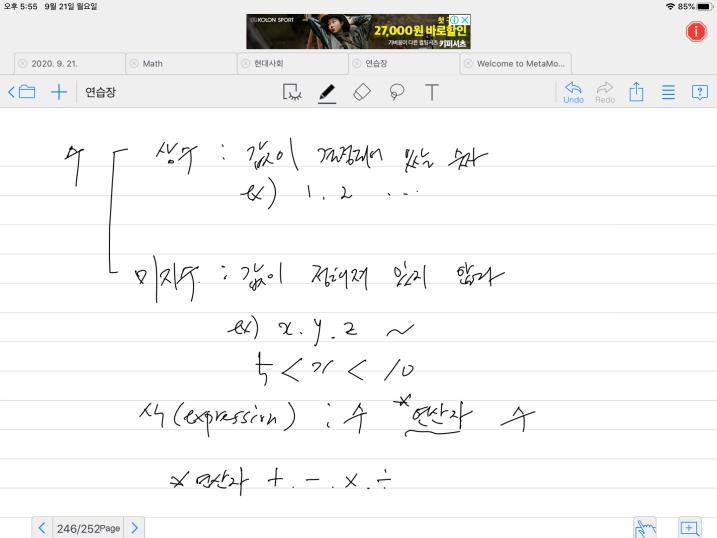 오후 5:55 9월 21일 월요일 85%
KOLON SPORT 27,000원 바로할인
키퍼셔츠
2020. 9. 21. Math 현대사회 연습장 Welcome to MetaMo...
연습장 T Undo Redo
수 상수 : 값이 고정되어 있는 숫자
ex) 1. 2 ...
미지수 : 값이 정해져 있지 않다
ex) x. y. z ~
5 < x < 10
식 (expression) : 수 *연산자 수
* 연산자 +. -. x. ÷
246/252Page